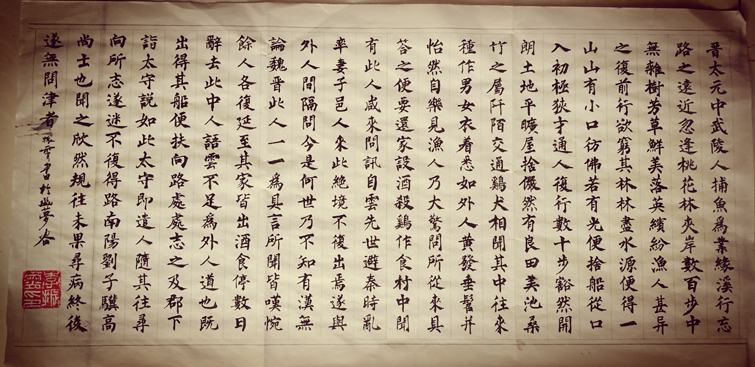 晉太元中武陵人捕魚爲業緣溪行忘
路之遠近忽逢桃花林夾岸數百步中
無雜樹芳草鮮美落英繽紛漁人甚异
之復前行欲窮其林林盡水源便得一
山山有小口彷彿若有光便捨船從口
入初極狹才通人復行數十步豁然開
朗土地平曠屋捨儼然有良田美池桑
竹之屬阡陌交通鷄犬相聞其中往來
種作男女衣着悉如外人黃發垂髫并
怡然自樂見漁人乃大驚問所從來具
荅之便要還家設酒殺鷄作食村中聞
有此人咸來問訊自雲先世避秦時亂
率妻子邑人來此絶境不復出焉遂與
外人間隔問今是何世乃不知有漢無
論魏晉此人一一爲具言所聞皆嘆惋
餘人各復延至其家皆出酒食停數日
辭去此中人語雲不足爲外人道也既
出得其船便扶向路處處志之及郡下
詣太守説如此太守即遣人隨其往尋
向所志遂迷不復得路南陽劉子驥高
尚士也聞之欣然規往未果尋病終後
遂無問津者